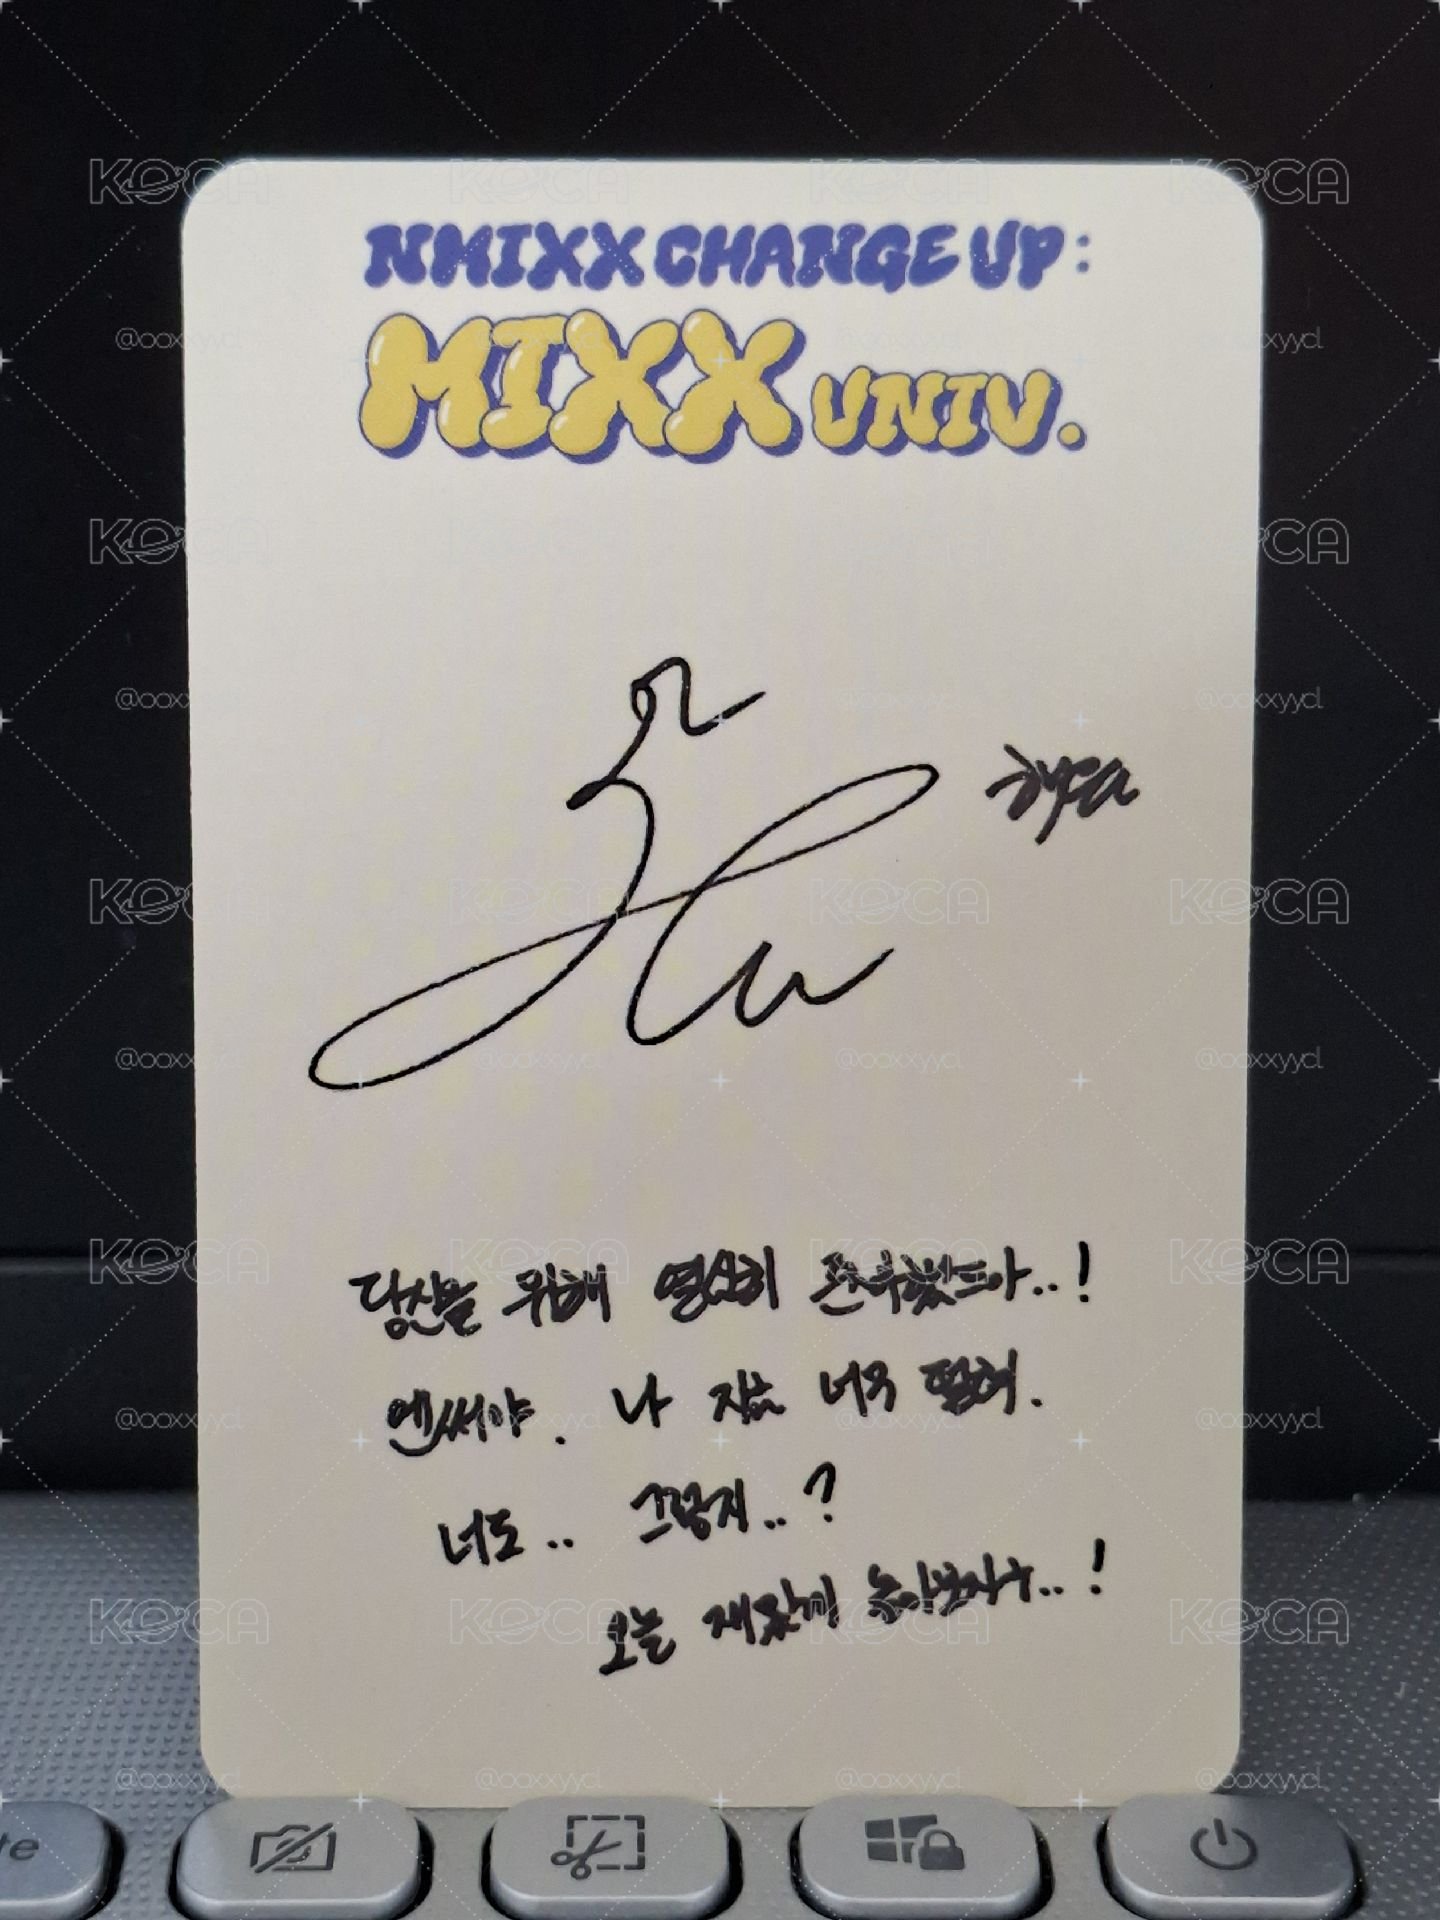 NMIXX CHANGE UP:
MIXX UNIV.
당신을 위해 열심히 준비했드아..!
엔써야. 나 지금 너무 떨려.
너도.. 그렇지..?
오늘 재밌게 놀아보자구..!
KOCA
@ooxxyycl
te